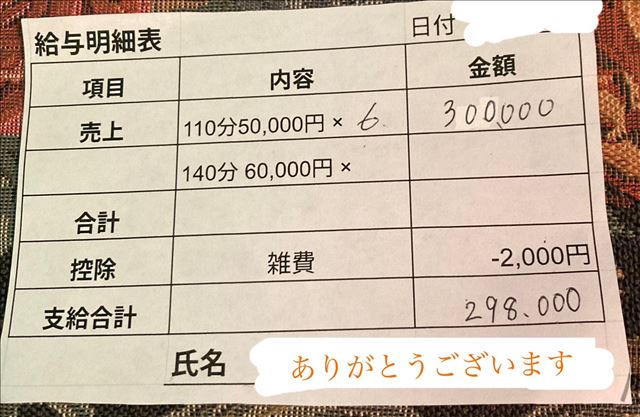 給与明細表
日付
項目 内容 金額
売上 110分50,000円 × 6 300,000
140分 60,000円 ×
合計
控除 雑費 -2,000円
支給合計 298.000
氏名 ありがとうございます